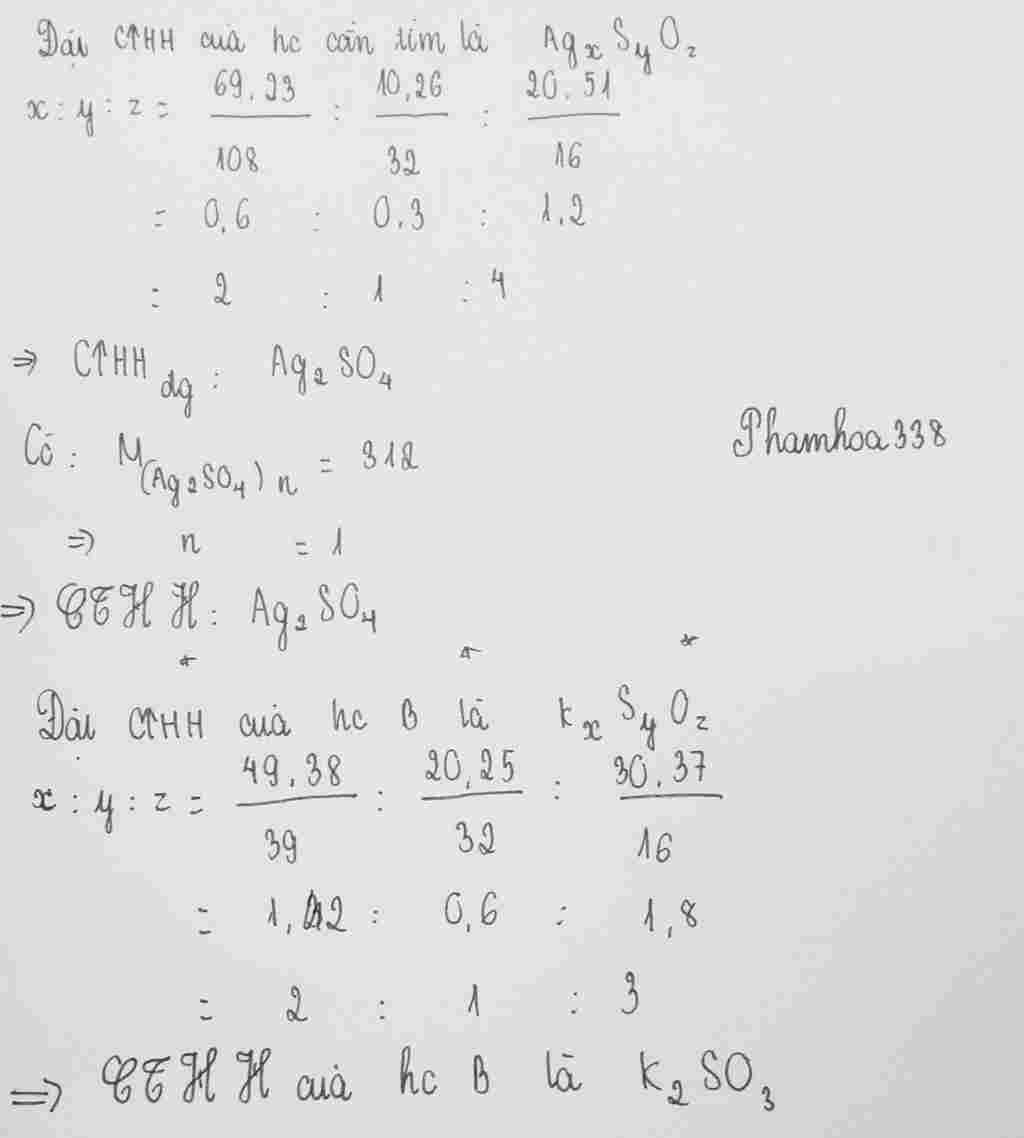 Đặt CTHH của hc cần tìm là AgxSyOz
x : y : z = 69,23/108 : 10,26/32 : 20,51/16
= 0,6 : 0,3 : 1,2
= 2 : 1 : 4
⇒ CTHH đg : Ag2SO4
Có : M(Ag2SO4)n = 312
Phamhoa338
⇒ n = 1
⇒ CTHH : Ag2SO4
* * *
Đặt CTHH của hc B là KxSyOz
x : y : z = 49,38/39 : 20,25/32 : 30,37/16
= 1,2 : 0,6 : 1,8
= 2 : 1 : 3
⇒ CTHH của hc B là K2SO3